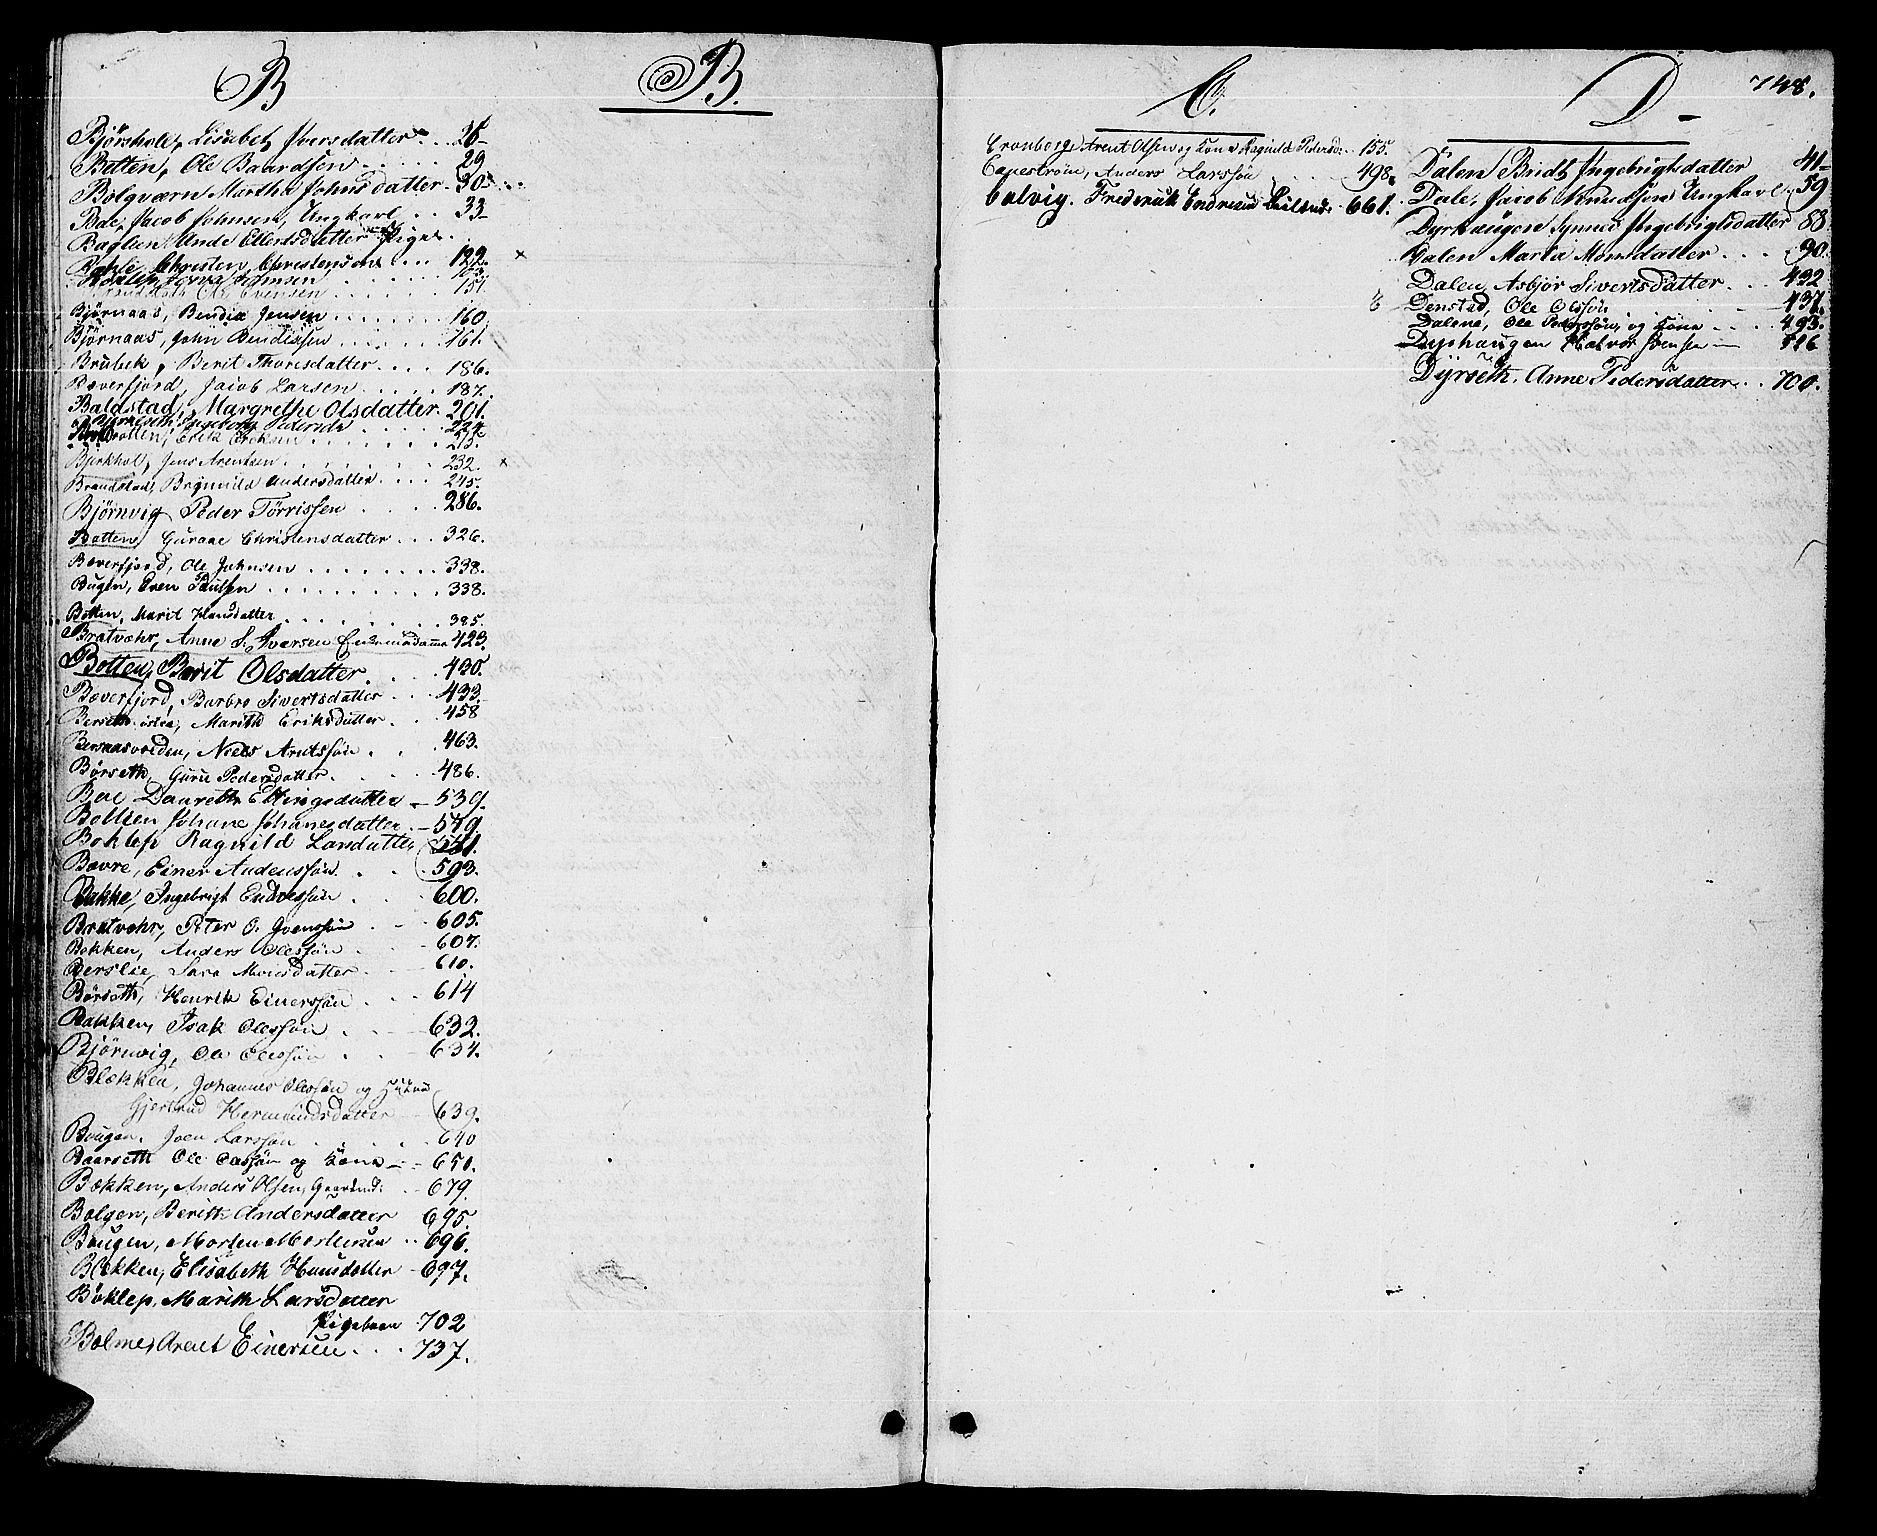 B
Bjørsholl, Lisabet Iversdatter 26
Botten, Ole Baardsen 29
Bolgværn Martha Johnsdatter 30
Bae, Jacob Johnsen, Ungkarl 33
Baglien Ande Ellertsdatter Pige
Bahle Christen Christensøns 122
151
Bjørnaas, Bendix Jensen 160
Bjørnaas, John Bendixsen 161
Brubek, Berit Thoresdatter 186.
Bæverfjord, Jacob Larsen 187.
Baldstad, Margrethe Olsdatter 201.
Ingeborg Pedersdr 224
Erik Eriksen 215.
Bjerkhol, Jens Arentsen 232.
Brandstad, Brynnild Andersdatter 245.
Bjørnvig Peder Tørrissen 286.
Battene Guraae Christensdatter 326.
Bæverfjord, Ole Johnsen 338.
Bugen, Even Paulsen 338.
Botten, Marit Hansdatter 385.
Bratvæhr, Anne S. Iversen Enkemadamme 423.
Botten, Berit Olsdatter 430.
Bæverfjord, Barbro Sivertsdatter 433.
Berseth østre, Marith Eriksdatter 458
Bersaasvreden, Niels Arntssøn 463.
Børseth, Guru Pedersdatter 486.
Bae Daareth Ellingsdatter 539.
Bollien Johane Johanesdatter 579.
Boklep Ragnild Larsdatter 581.
Bævre, Einer Andenssøn 593.
Bakke, Ingebrigt Endressøn 600.
Bratvæhr, Peter O. Ivenssøn 605.
Bekken, Anders Olessøn 607.
Berslie, Sara Monsdatter 610.
Børseth, Henrik Einerssøn 614
Bakken, Isak Olessøn 632.
Bjørnvig, Ole Olessøn 634.
Blekken, Johannes Olessøn og Hustru
Gjertrud Hermundsdatter 639.
Bougen, Joen Larssøn 640
Baarseth Ole Olessøn og Kone 651.
Bækken, Anders Olsen, Gaardmd: 679.
Bolgen, Berith Andersdatter 695.
Bougen, Morten Mortensen 696.
Blekken, Elisabeth Hansdatter 697.
Bøklep, Marith Larsdatter
Pigebarn 702
Bolme, Arent Einersen 737.
B.
C.
Cronborg, Arent Olsen og Kone Ragnild Pedersd: 155.
Capestrøm, Anders Larssøn 498.
Calvig. Frederik Endresen 661.
D
748.
Dalen Bridt Ingebrigtsdatter 41
Dale, Jacob Knudsen Ungkarl 59
Dyrhaugen Synnev Ingebrigtsdatter 88
Dalen Marta Monsdatter 90.
Dalen, Asbjør Sivertsdatter 432
Denstad, Ole Olssøn 437.
Dalene, Ole Pederssøn, og Kone 493.
Dyrhaugen Halvor Svensen 596
Dyrseth, Anne Pedersdatter 700.